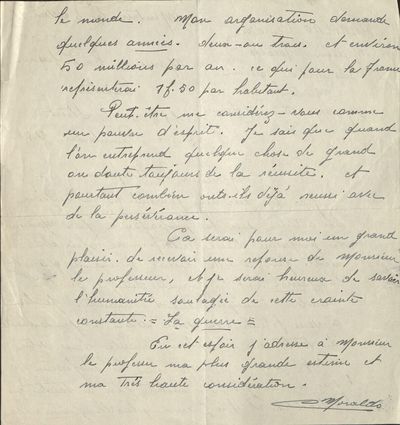 le monde. Mon organisation demande
quelques années. deux-ou trois. et environ
50 millions par an. ce qui pour la France
représenterai 1f.50 par habitant.
Peut-être me considérez-vous comme
un pauvre d'esprit. Je sais que quand
l'on entreprend quelque chose de grand
on doute toujours de la réussite. et
pourtant combien ont-ils déjà réussi avec
de la persévérance.
Ça serai pour moi un grand
plaisir. de recevoir une réponse de Monsieur
le professeur, et je serai heureux de savoir
l'humanitée soulagée de cette crainte
constante : = La guerre =
En cet espoir j'adresse à Monsieur
le professeur ma plus grande estime et
ma très haute considération.
Moraldo